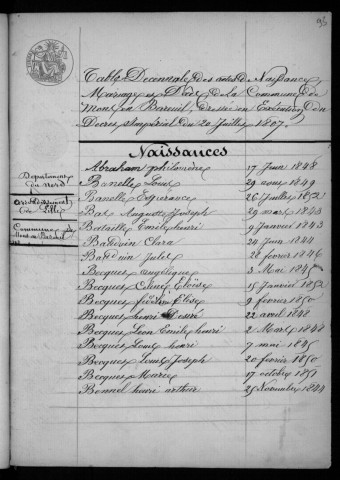 95
Table Décennale des actes de Naissance
Mariages et Décès de la Commune de
Mons en Bareuil, dressée en Exécution d'un
Décret Impérial du 20 Juillet 1807.
Naissances
Département
du nord
arrondissement
de Lille
Commune de
Mons en Bareuil
Abraham philomène 17 Juin 1848
Banelle Louis 29 1849
Banelle Espérance 26 Juillet 1852
Bat Auguste Joseph 29 mars 1843
Bataille Emile henri 9 Janvier 1843
Bauduin Clara 24 Juin 1844
Bauduin Jules 28 fevrier 1846
Becques angélique 3 Mai
Becques Eloïse 15 Janvier 1852
Becques Eloïse 9 février 1850
Becques henri Désiré 22 avril 1848
Becques Léon Emile henri 2 1848
Becques Louis henri 7 mai 1845
Becques Louis Joseph 20 fevrier 1850
Becques Marie 17 octobre 1851
Bonnel henri arthur 25 Novembre 1844